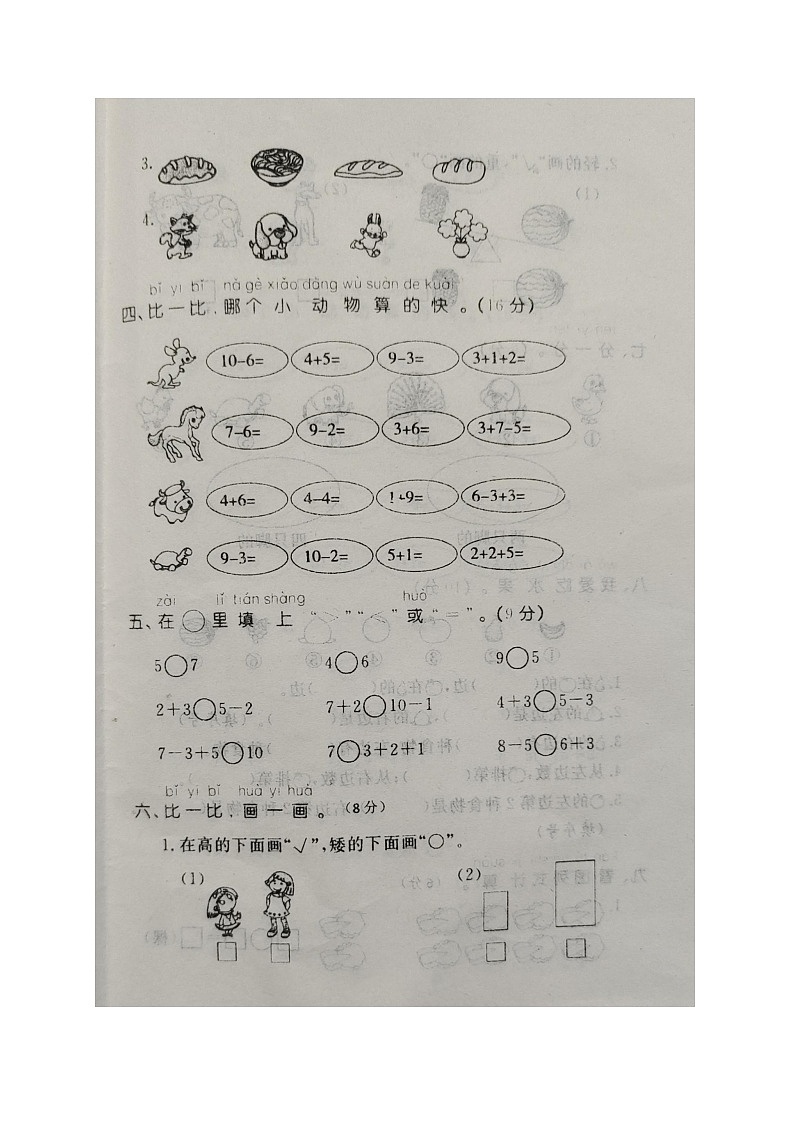 3.
4.
bǐ yi bǐ nǎ gè xiǎo dòng wù suàn de kuài
四、比一比，哪个小动物算的快。(16分)
10-6= 4+5= 9-3= 3+1+2=
7-6= 9-2= 3+6= 3+7-5=
4+6= 4-4= 1+9= 6-3+3=
9-3= 10-2= 5+1= 2+2+5=
zài lǐ tián shàng huò
五、在○里填上“>”“<”或“=”。(9分)
5○7 4○6 9○5
2+3○5-2 7+2○10-1 4+3○5-3
7-3+5○10 7○3+2+1 8-5○6+3
bǐ yi bǐ huà yi huà
六、比一比，画一画。(8分)
1.在高的下面画“√”,矮的下面画“○”。
(1) (2)